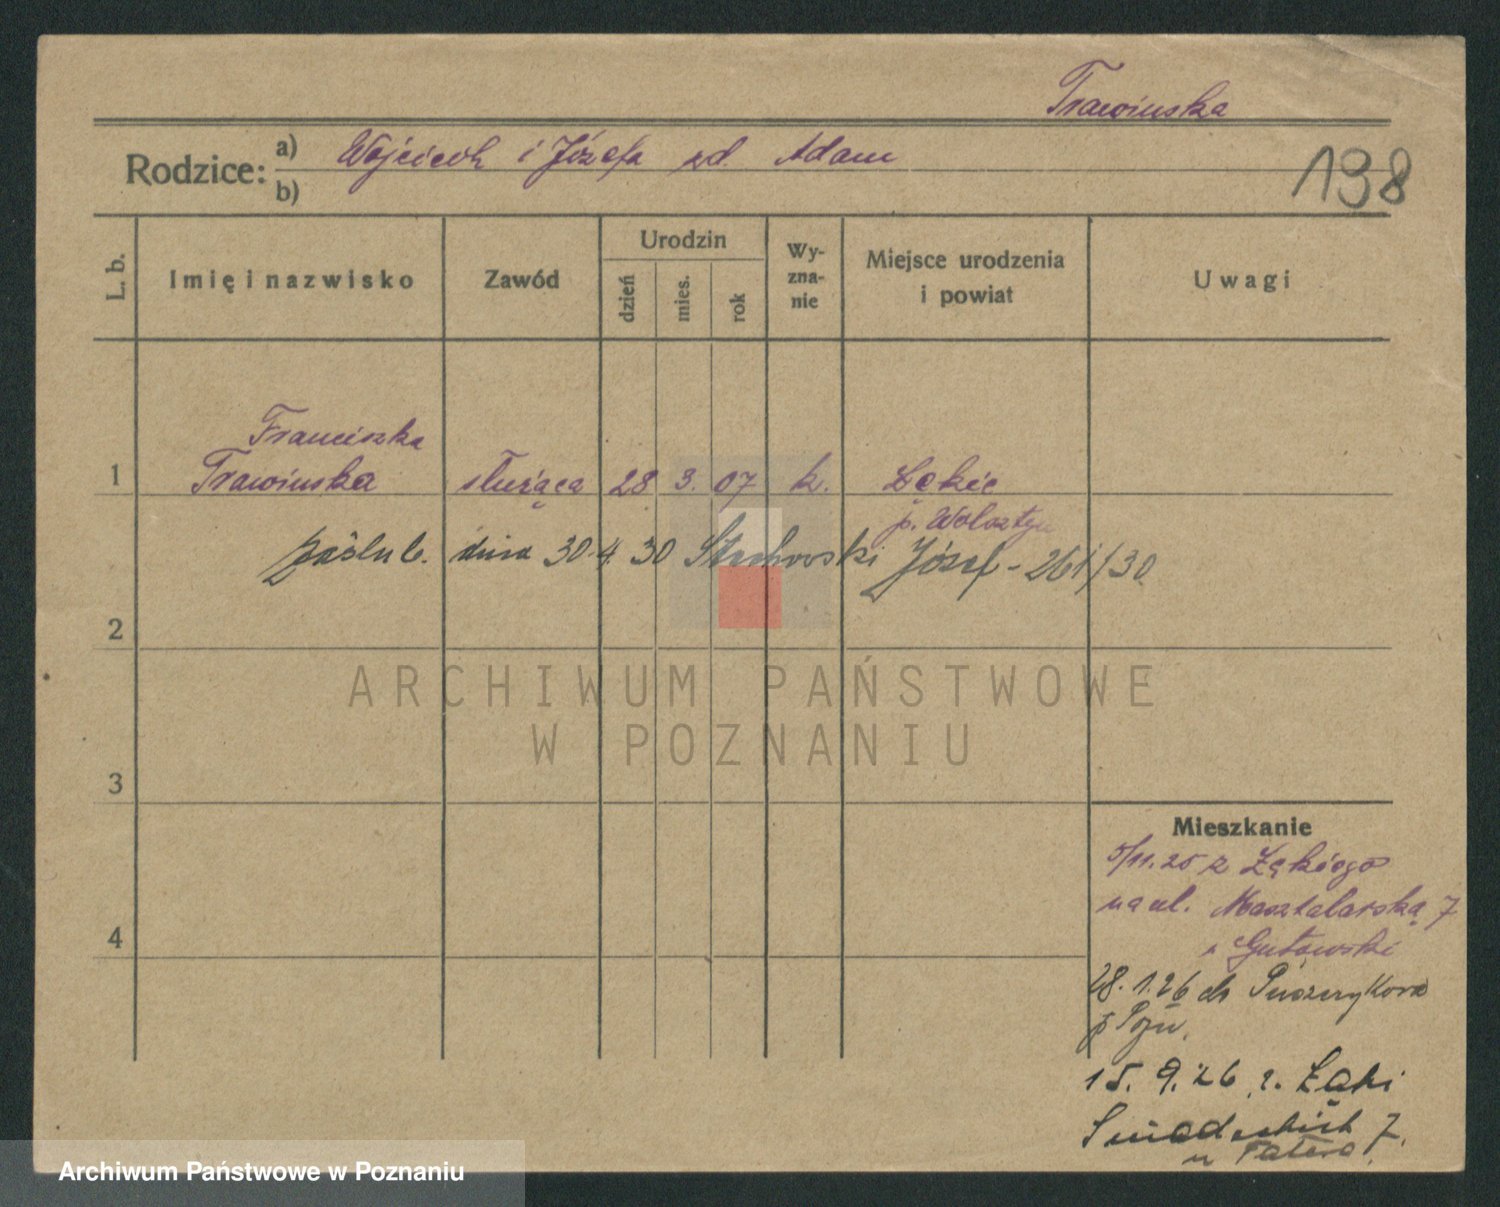 Trawinska
Rodzice: a) Wojciech i Józefa zd. Adam
b)
198
L. b.
Imię i nazwisko
Zawód
Urodzin
dzień
mies.
rok
Wy-
zna-
nie
Miejsce urodzenia
i powiat
Uwagi
Franciszka
1 Trawinska służąca 28 3. 07 k. Łąkie
p. Wolsztyn
zaślub. dnia 30.4.30 Józef - 261/30
2
ARCHIWUM PAŃSTWOWE
W POZNANIU
3
Mieszkanie
5/11.25 z Łąkiego
na ul. Masztalarską 7
4
Gutowski
28.1.26 do Puszczykowa
p. Pozn.
15.9.26 z. Łąki
Śniadeckich 7.
u
Archiwum Państwowe w Poznaniu